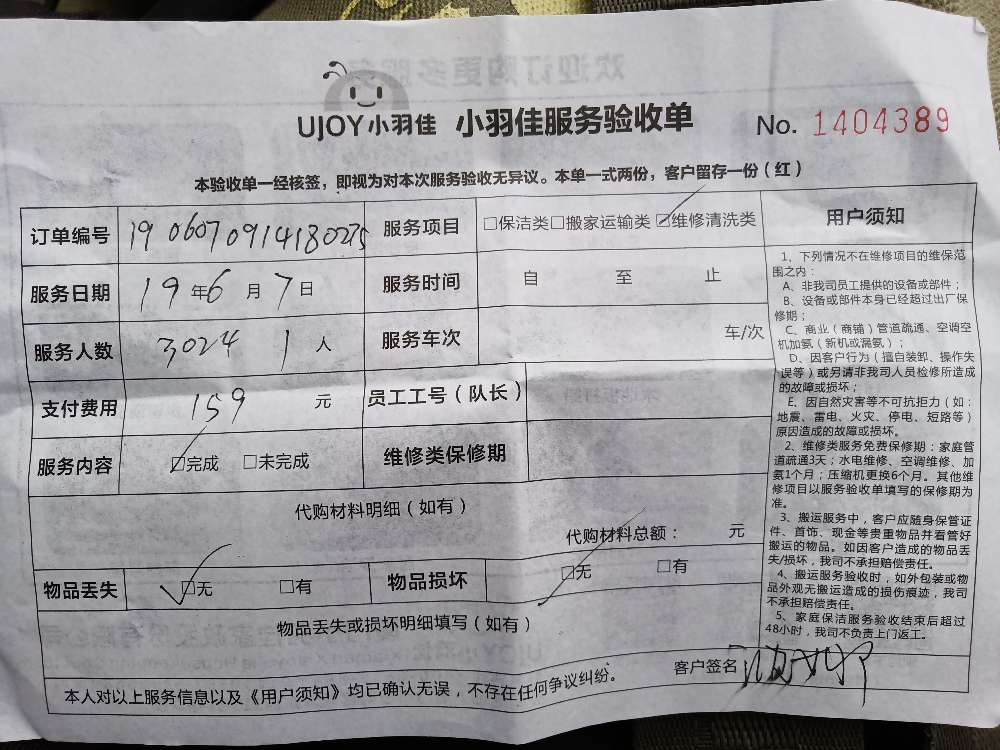 UJOY小羽佳 小羽佳服务验收单 No. 1404389
本验收单一经核签，即视为对本次服务验收无异议。本单一式两份，客户留存一份（红）
订单编号 1906070914180275 服务项目 □保洁类□搬家运输类☑维修清洗类
服务日期 19年6月7日 服务时间 自 至 止
服务人数 3024 1人 服务车次 车/次
支付费用 159 元 员工工号（队长）
服务内容 ☑完成 □未完成 维修类保修期
代购材料明细（如有）
代购材料总额： 元
物品丢失 ☑无 □有 物品损坏 ☑无 □有
物品丢失或损坏明细填写（如有）
客户签名
本人对以上服务信息以及《用户须知》均已确认无误，不存在任何争议纠纷。
用户须知
1、下列情况不在维修项目的维保范
围之内：
A、非我司员工提供的设备或部件；
B、设备或部件本身已经超过出厂保
修期；
C、商业（商铺）管道疏通、空调空
机加氨（新机或漏氨）；
D、因客户行为（擅自装卸、操作失
误等）或另请非我司人员检修所造成
的故障或损坏；
E、因自然灾害等不可抗拒力（如：
地震、雷电、火灾、停电、短路等）
原因造成的故障或损坏。
2、维修类服务免费保修期：家庭管
道疏通3天；水电维修、空调维修、加
氨1个月；压缩机更换6个月。其他维
修项目以服务验收单填写的保修期为
准。
3、搬运服务中，客户应随身保管证
件、首饰、现金等贵重物品并看管好
搬运的物品。如因客户造成的物品丢
失/损坏，我司不承担赔偿责任。
4、搬运服务验收时，如外包装或物
品外观无搬运造成的损伤痕迹，我司
不承担赔偿责任。
5、家庭保洁服务验收结束后超过
48小时，我司不负责上门返工。